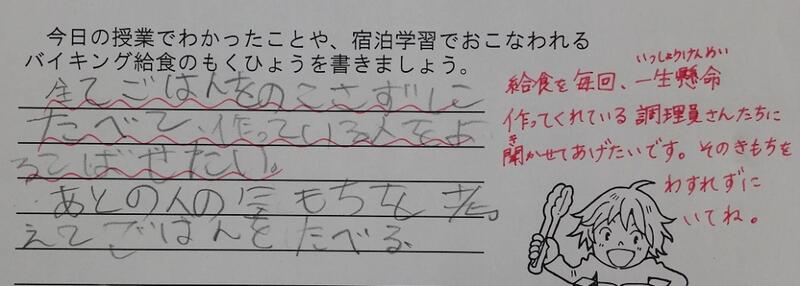 今日の授業でわかったことや、宿泊学習でおこなわれる
バイキング給食のもくひょうを書きましょう。
全てごはんをのこさずに
たべて、作っている人をよ
ろこばせたい。
あとの人の気もちを考
えてごはんをたべる
いっしょうけんめい
給食を毎回、一生懸命
作ってくれている調理員さんたちに
き
聞かせてあげたいです。そのきもちを
わすれずに
いてね。